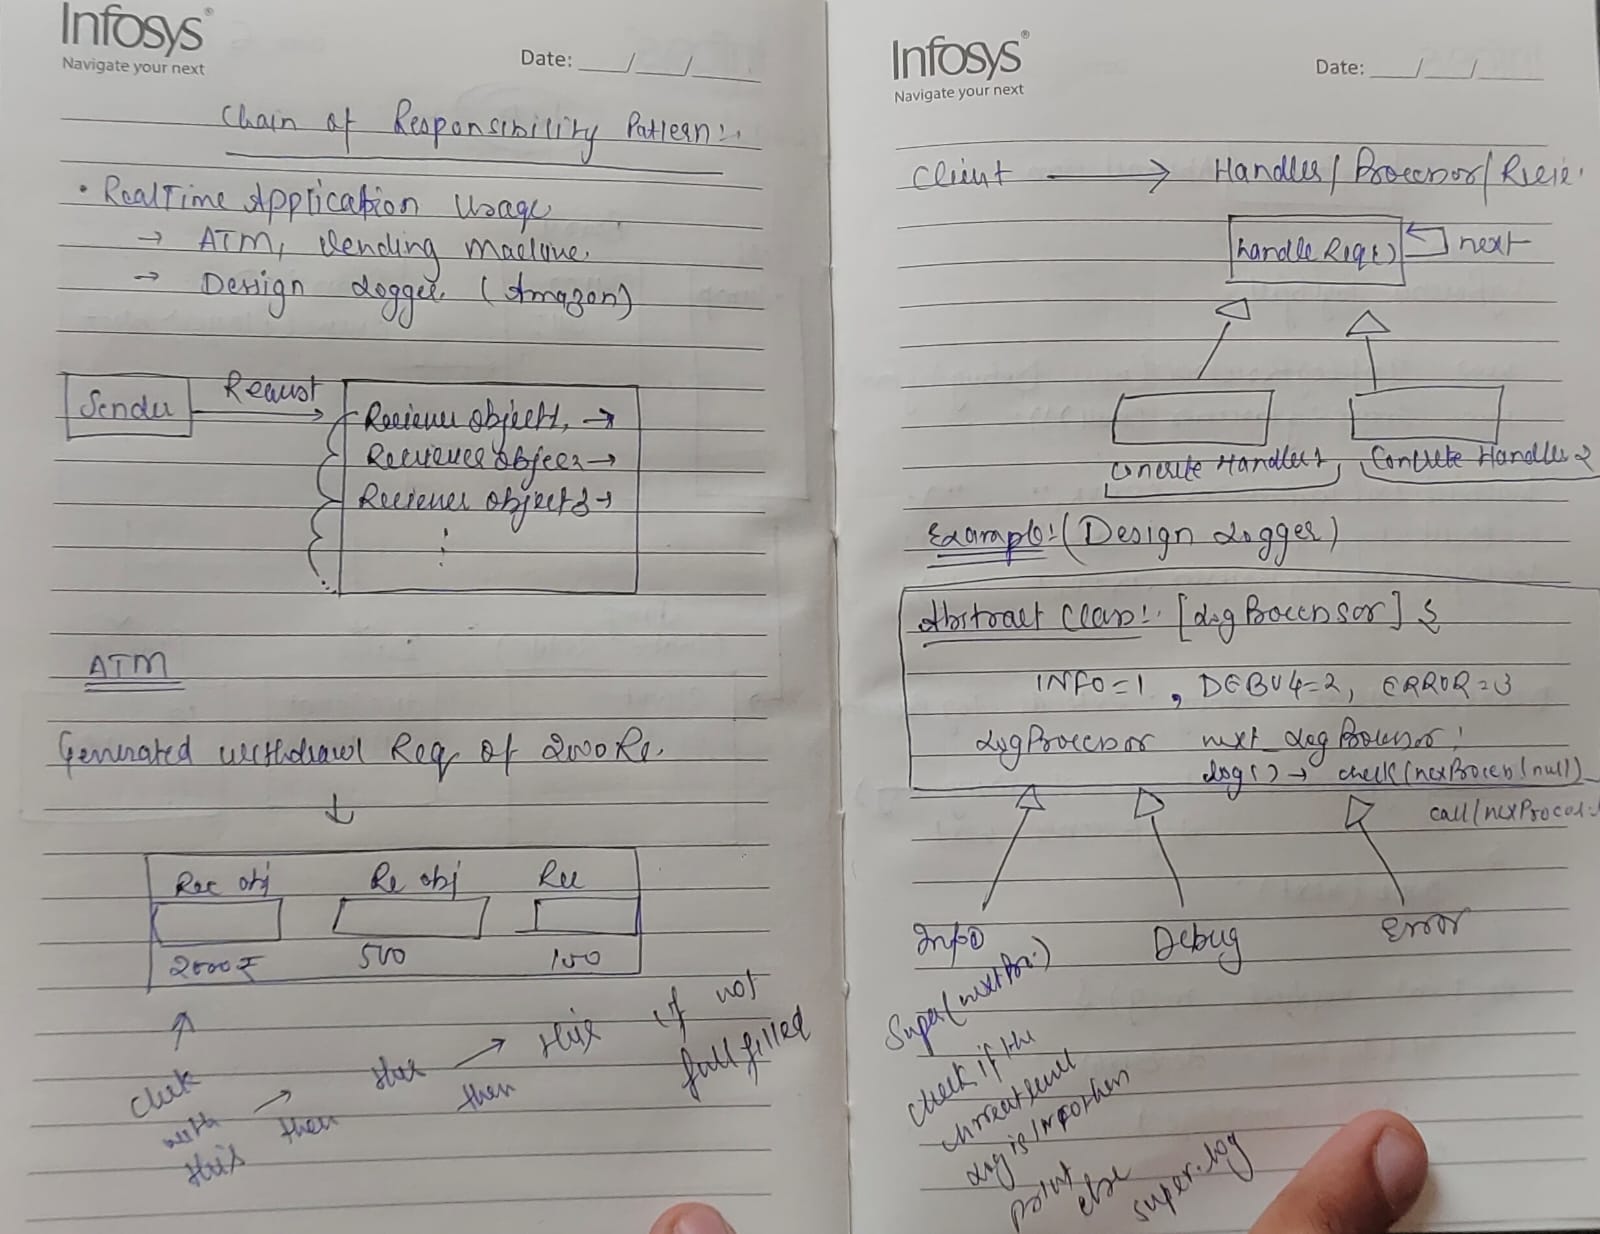 Infosys®
Navigate your next
Date: ___/___/___
Chain of Responsibility Pattern:.
• RealTime Application Usage
→ ATM, Vending Machine.
→ Design Logger. (Amazon)
Sender
Request
Reciever object1, →
Reciever object2 →
Reciever object3 →
ATM
Generated withdrawl Req of 2000 Rs.
↓
Rec obj Re obj Rec
2000₹ 500 100
check with this → then this → then this if not fullfilled
Infosys®
Navigate your next
Date: ___/___/___
Client → Handler/Processor/Recie.
handleReq() next
Concrete Handler1, Concrete Handler2
Example: (Design Logger)
Abstract Class:. [LogProcessor] {
INFO=1, DEBUG=2, ERROR=3
LogProcessor next_LogProcessor;
log() → check(nexProcess!null)
call(nexProces.
Info Debug Error
Super(nextPro.)
check if the
current level
log is Info then
print
else
super.log